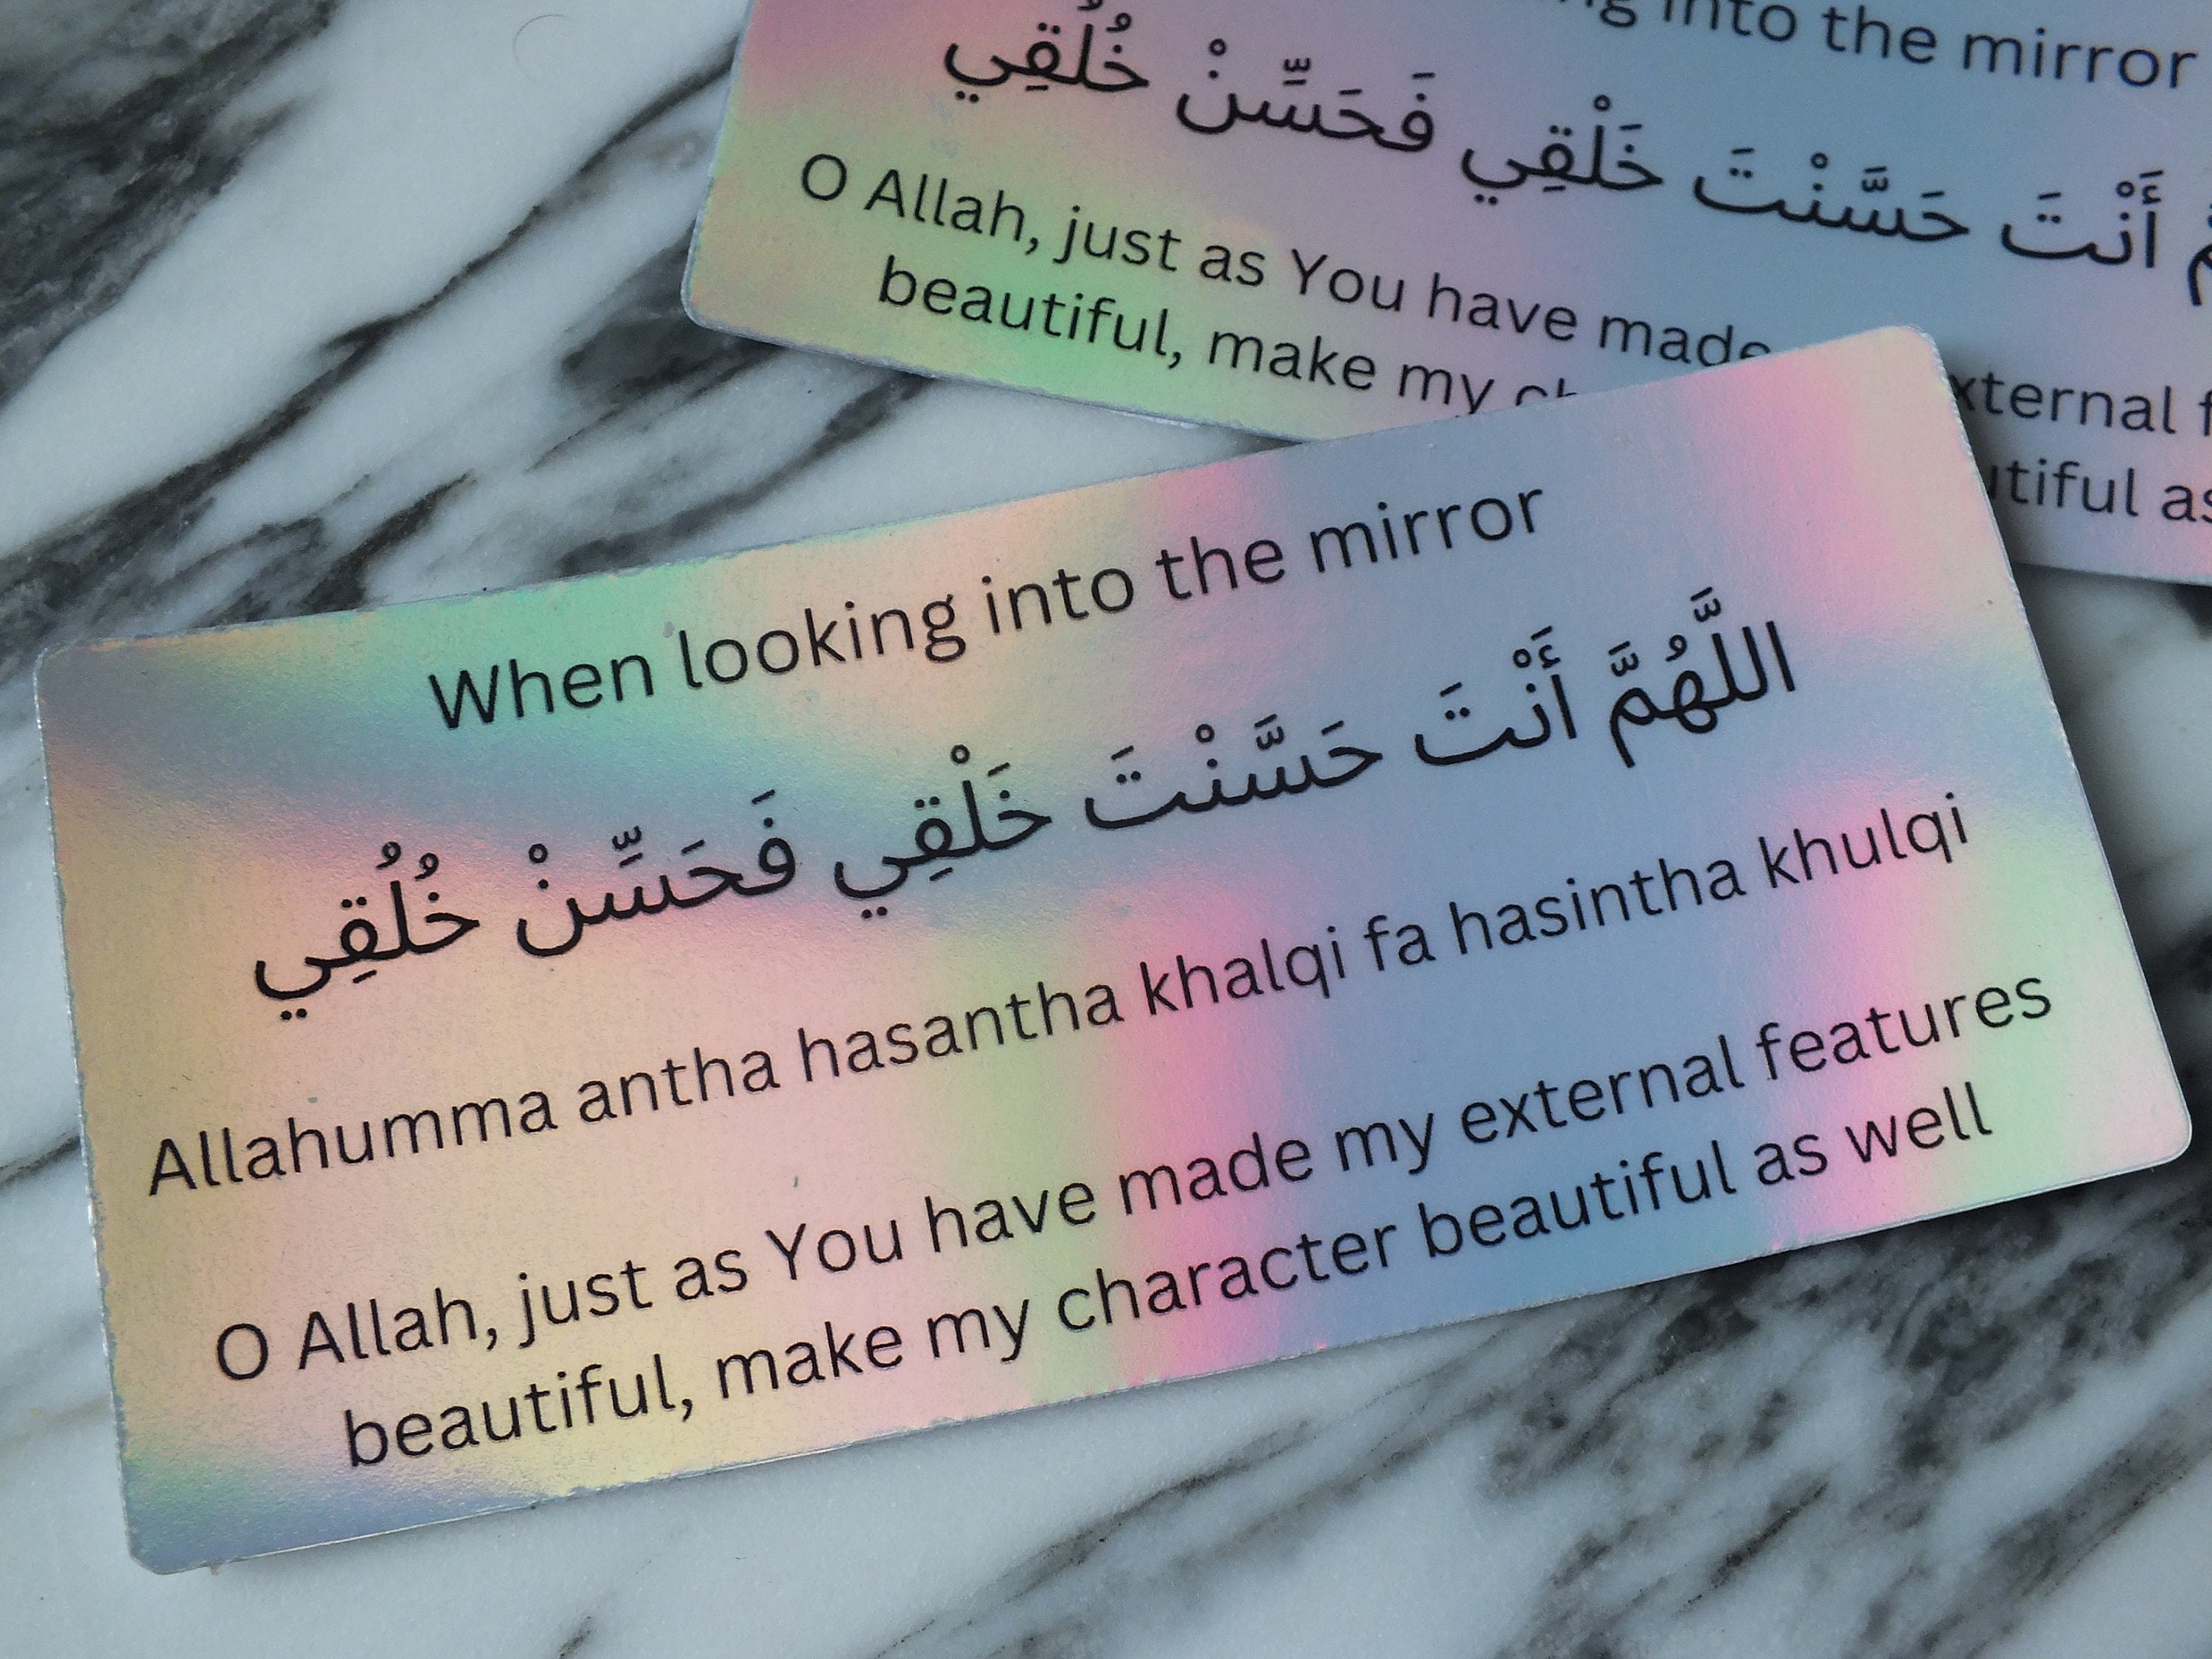 ng into the mirror
أَنْتَ حَسَّنْتَ خَلْقِي فَحَسِّنْ خُلُقِي
O Allah, just as You have made xternal f
beautiful, make my utiful as
When looking into the mirror
اللَّهُمَّ أَنْتَ حَسَّنْتَ خَلْقِي فَحَسِّنْ خُلُقِي
Allahumma antha hasantha khalqi fa hasintha khulqi
O Allah, just as You have made my external features
beautiful, make my character beautiful as well